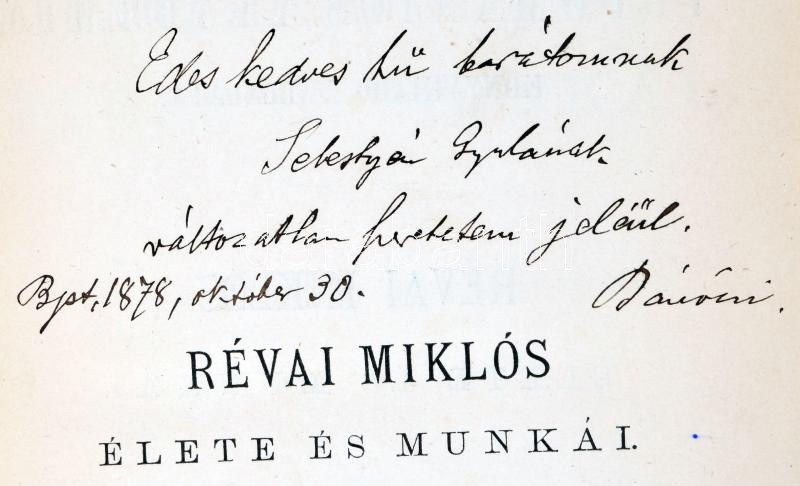 Édes kedves hű barátomnak
Sebestyén Gyulának
változatlan szeretetem jeléül.
Bpt, 1878, október 30. Bánóczi.
RÉVAI MIKLÓS
ÉLETE ÉS MUNKÁI.